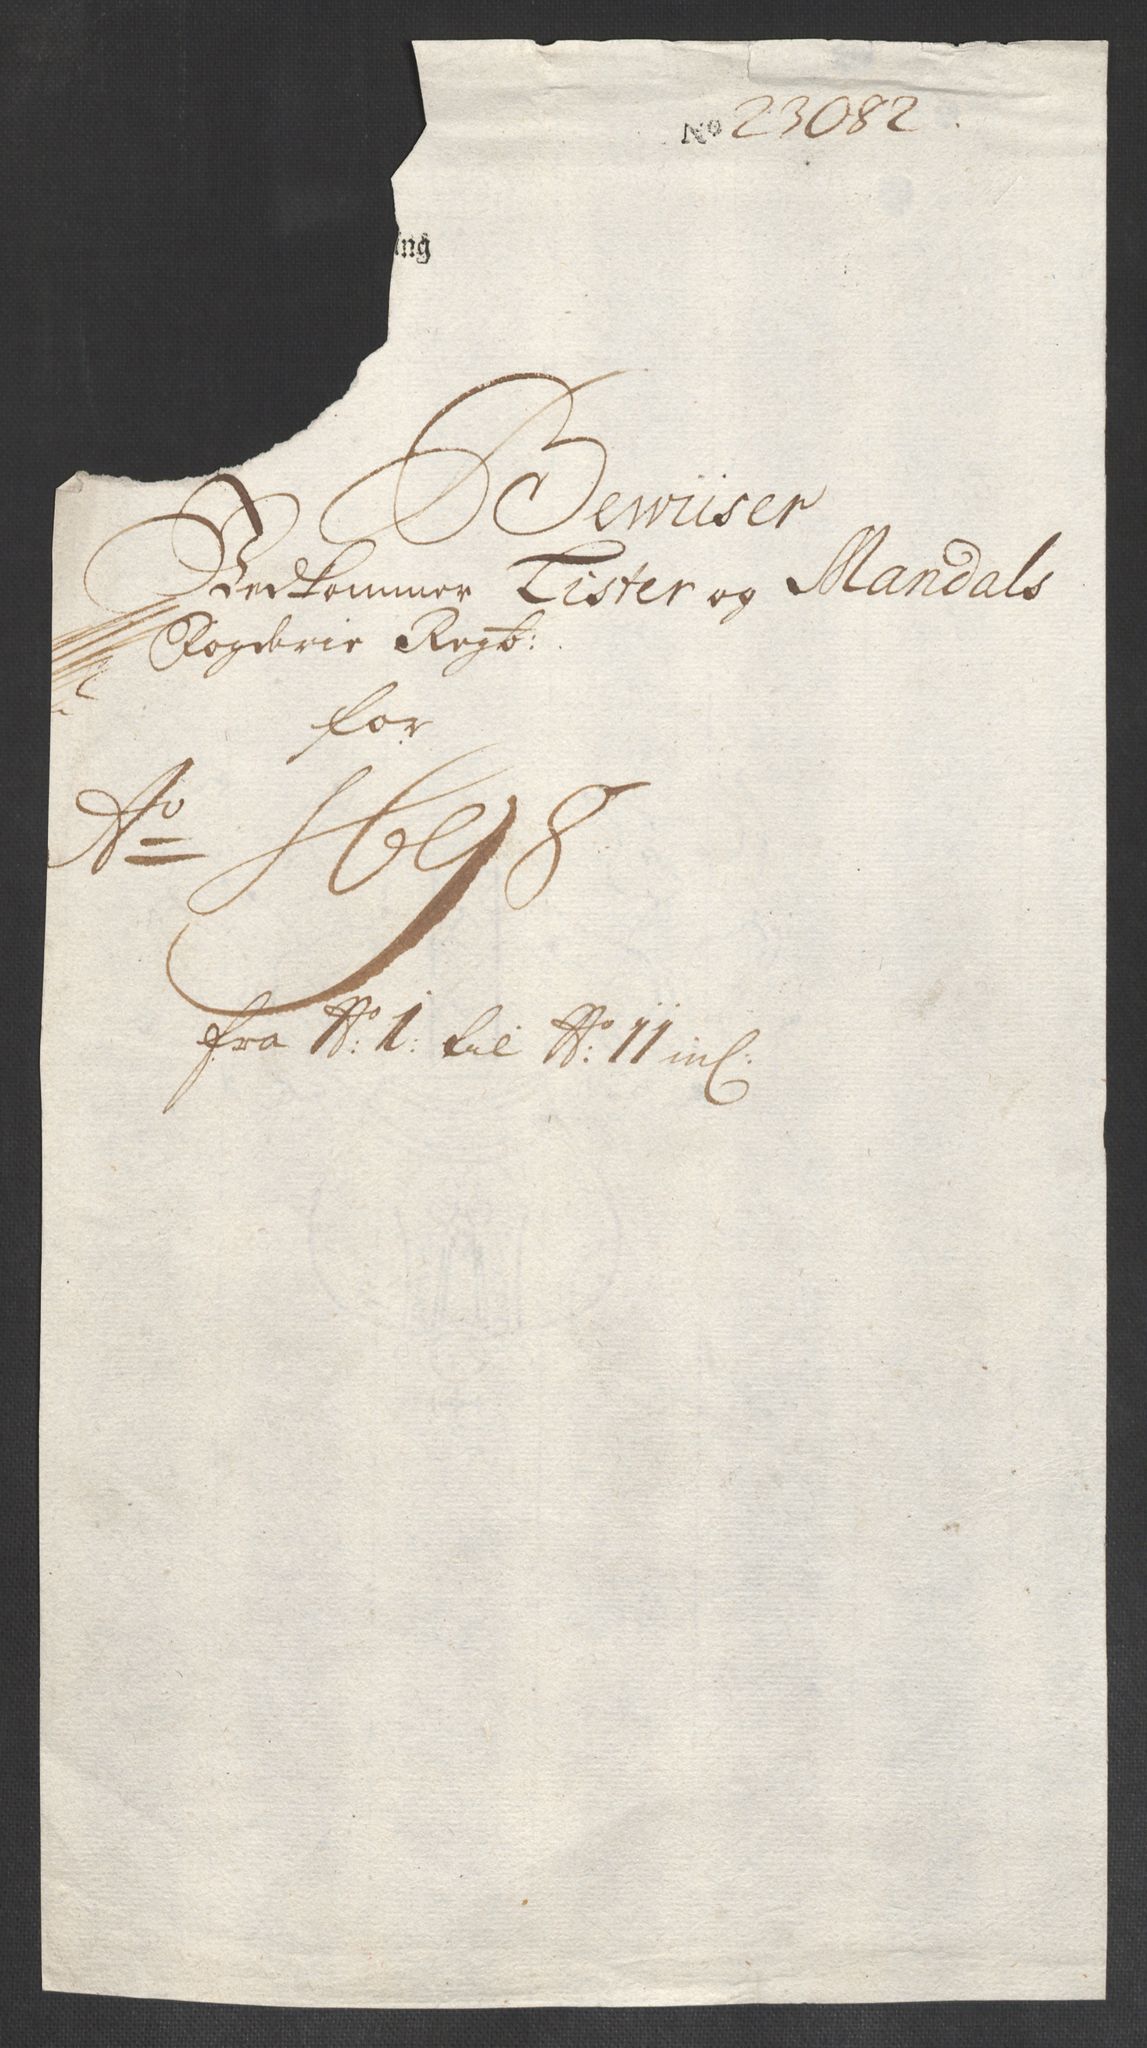 No 23082.
ing
Bewiiser
Vedkommer Lister og Mandals
Fogderie Regb:
for
Ao 1698
fra No: 1: til No: 11 incl: